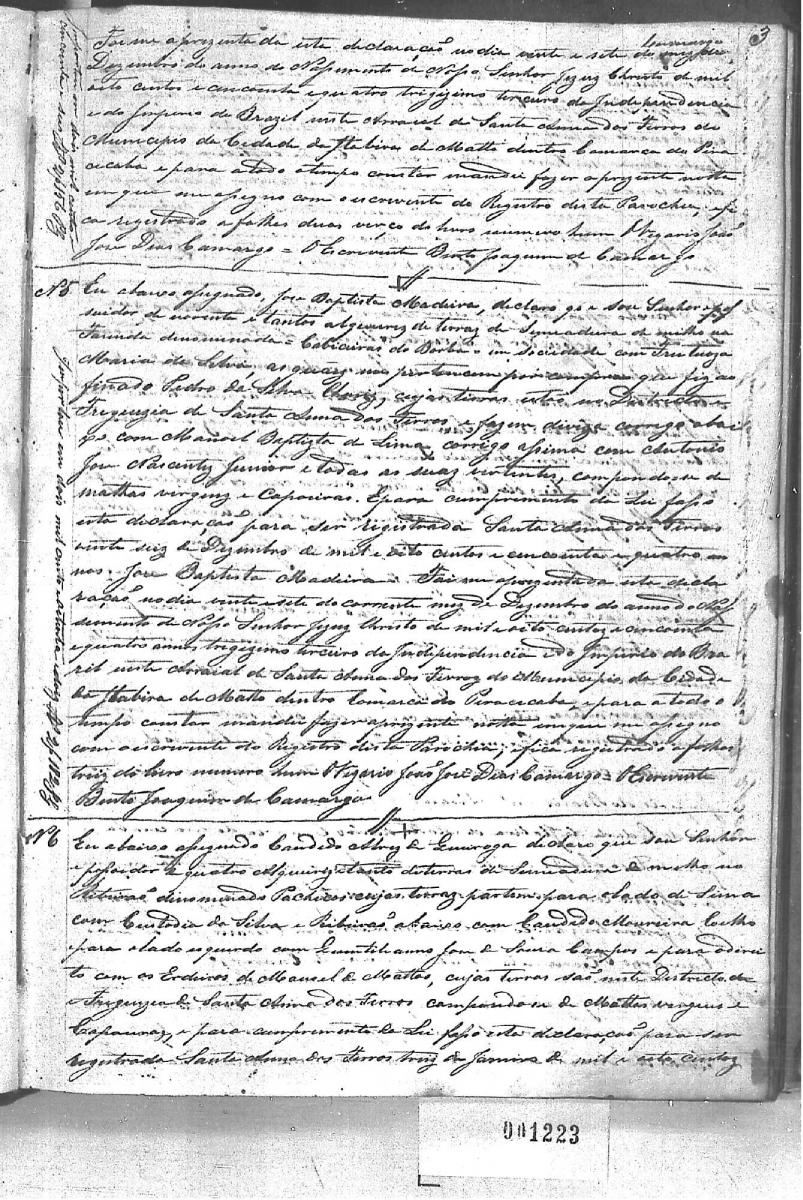 3
Camargo
Foi me aprezentada esta declaração no dia vente e sete do mez de
Dezembro do anno do Nassimento de Nosso Senhor Jezuz Christo de mil
oito centos e cincoenta e quatro trigizimo terceiro da Independencia
e do Imperio do Brazil neste Arraial de Santa Anna dos Ferros do
Municipio da Cidade da Itabira de Matto dentro Comarca do Pira
cicaba e para a todo o tempo constar mandei fazer a prezente notta
em que me assegno com o escrivente do Registro desta Parochia, e fi
ca registrado a folhas duas verço do livro numero hum O Vigario João
José Dias Camargo = O Escrevente Bento Joaquim de Camargo
Nº5 Eu abaixo assegnado, Joze Baptista Madeira, declaro q e sou Senhor e pos
suidor de noventa e tantos alqueirez de terraz de Simeadura de milho na
Fazenda denominada = Cabiceiras do Borba = em Sociedade com Frutuoza
Maria da Silva, as quaez nos pertencem por compra que fiz ao
finado Pedro da Silva cujas terras estão no Districto e
Freguezia de Santa Anna dos Ferros e fazem diviza corrigo abai
xo com Manoel Baptista de Lima, corrigo assima com Antonio
Joze Junior e todas as suaz vertentes, compondo-se de
mathas virgenz e Capoeiras. E para cumprimento da Lei fasso
esta declaração para ser registrada Santa Anna dos Ferros
vinte seiz de Dezembro de mil e oito centos e cincoenta e quatro an
nos. Joze Baptista Madeira = Foi me aprezentada esta decla
ração no dia vente e sete do corrente mez de Dezembro do anno do Nas
semento de Nosso Senhor Jezuz Christo de mil e oito centoz e cincoenta
e quatro annos trigizimo terceiro da Independencia e do Imperio do Bra
zil neste Arraial de Santa Anna dos Ferroz do Municipio da Cidade
da Itabira de Matto dentro Comarca do Piracicaba, e para a todo o
tempo constar mandei fazer a prezente notta em que me assegno
com o escrivente do Registro desta Parochia; e fica registrado a folhas
trez do livro numero hum O Vigario João José Dias Camargo = O Escrevente
Bento Joaquim de Camargo
Nº6 Eu abaixo assegnado Candido Alvez de Quiroga declaro que sou Senhor
e possoidor de quatro Alqueirez e tanto de terras de Simeadura de milho no
Ribeirão denominado Pachecos cujas terraz partem para o lado de Sima
com Custodia da Silva e Ribeirão abaixo com Candido Moureira Coelho
para o lado esquerdo com Quintiliano Joze de Souza Campos e para o direi
to com os Erdeiros de Manoel de Mattos, cujas terras são neste Districto da
Freguezia de Santa Anna dos Ferros compondo-se de Mattas virgens e
Capoeiraz, e para cumprimento da Lei fasso esta declaração para ser
registrada Santa Anna dos Ferros trez de Janeiro de mil e oito centoz
001223